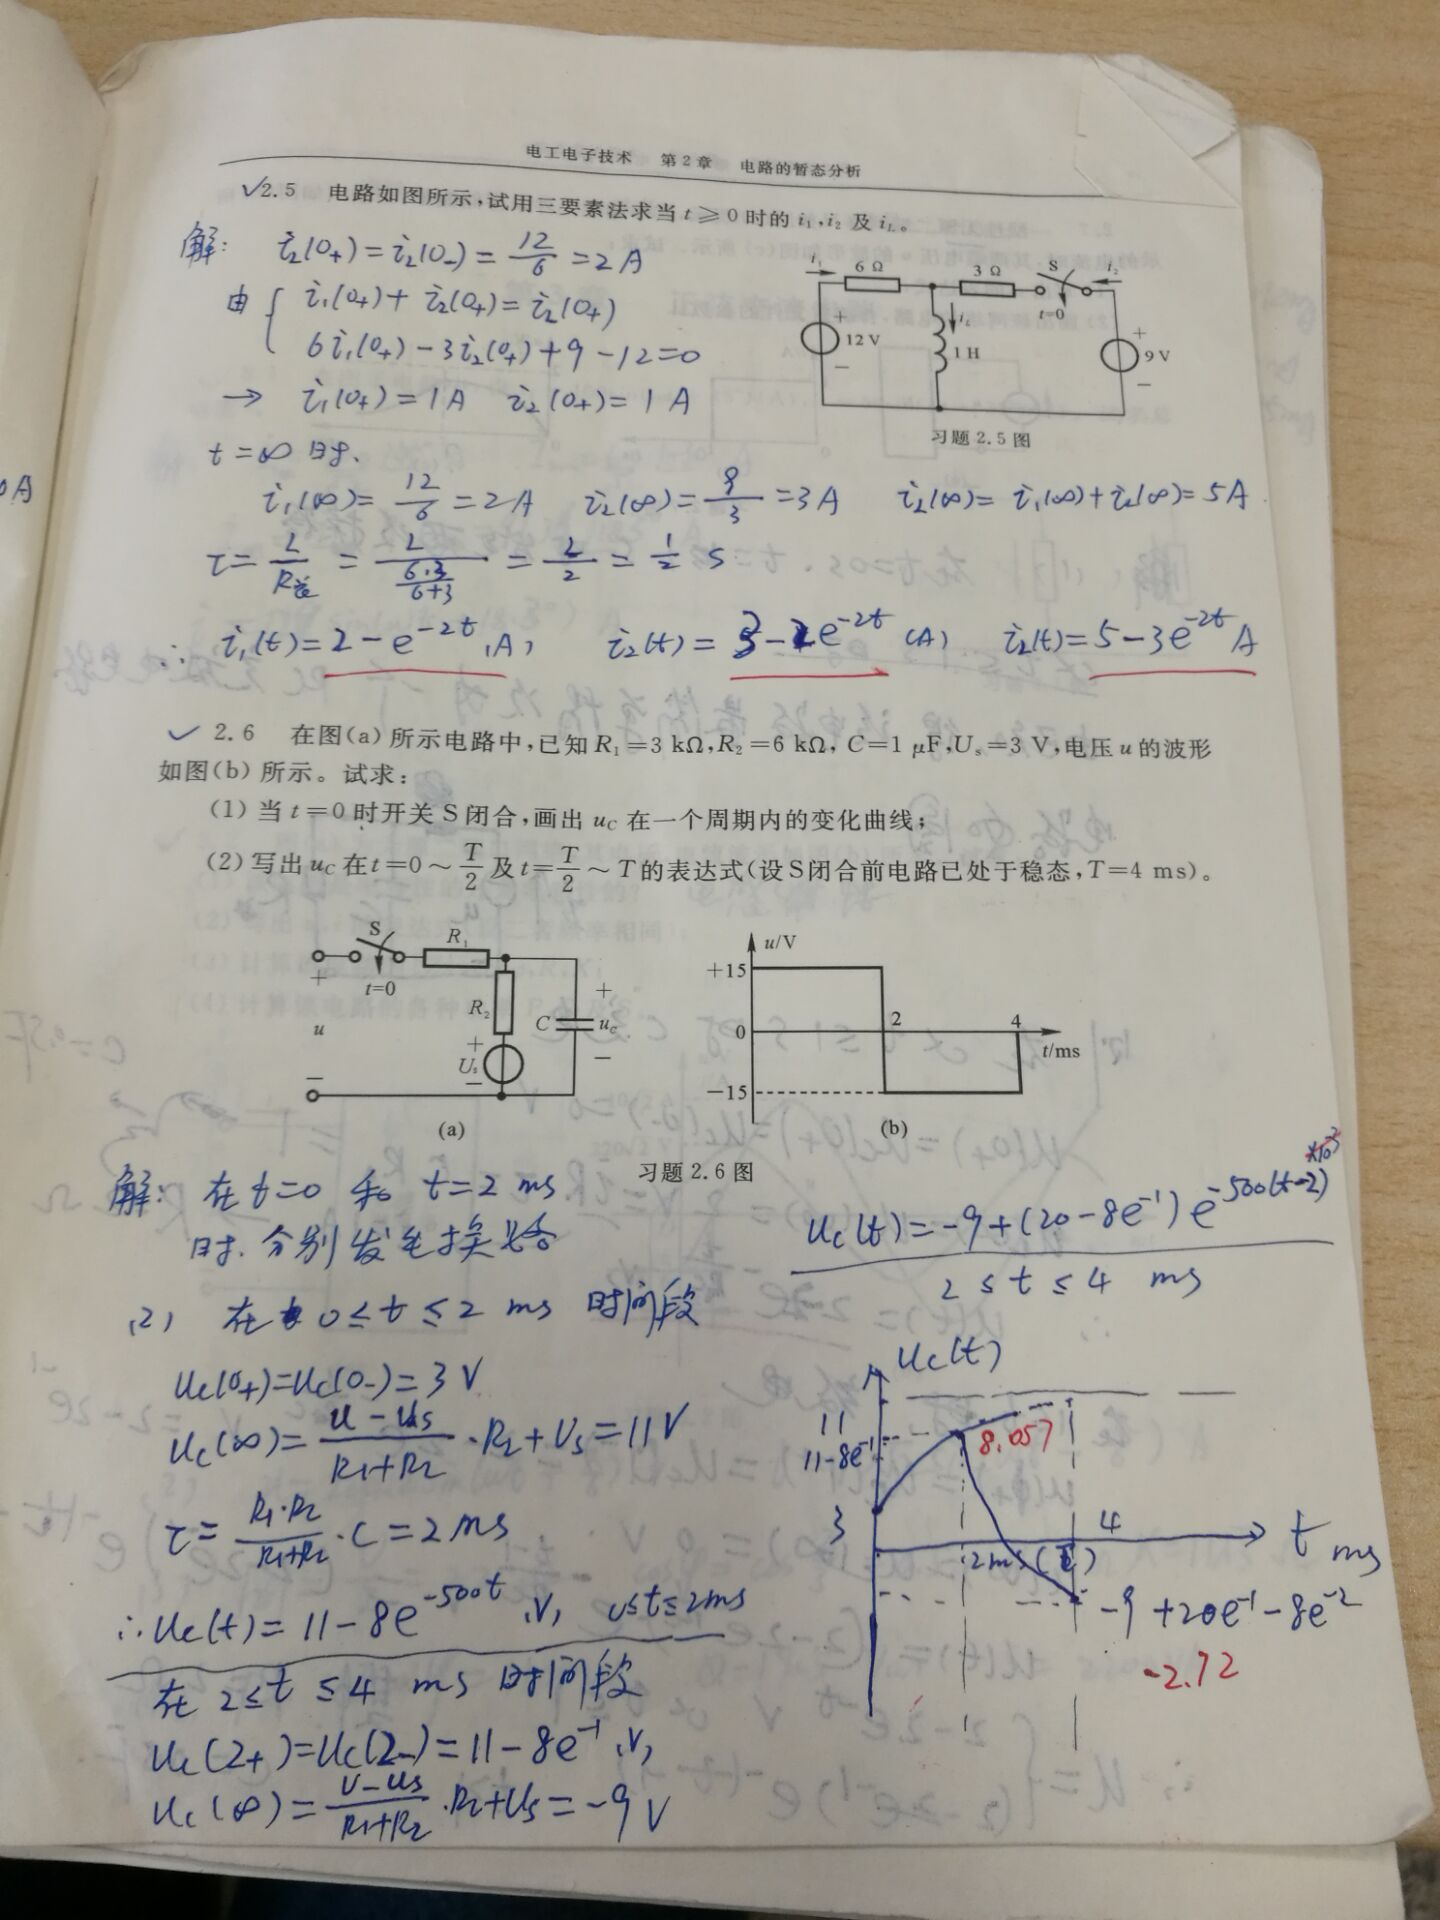 电工电子技术 第2章 电路的暂态分析
✓2.5 电路如图所示,试用三要素法求当t≥0时的i₁,i₂及i_L。
解: i₂(0₊)=i₂(0₋)=12/6=2A
由{ i₁(0₊)+i₂(0₊)=i₂(0₊)
6i₁(0₊)-3i₂(0₊)+9-12=0
→ i₁(0₊)=1A i₂(0₊)=1A
i₁ 6Ω 3Ω S i₂
t=0
+ i_L +
12V 1H 9V
− −
习题2.5图
t=∞时.
i₁(∞)=12/6=2A i₂(∞)=9/3=3A i₂(∞)=i₁(∞)+i₂(∞)=5A
τ=L/R总=L/(6·3/(6+3))=L/2=1/2 s
∴ i₁(t)=2-e^(-2t) (A) i₂(t)=3-2e^(-2t) (A) i₂(t)=5-3e^(-2t) A
✓ 2.6 在图(a)所示电路中,已知R₁=3 kΩ,R₂=6 kΩ, C=1 μF,Uₛ=3 V,电压u的波形
如图(b)所示。试求:
(1)当t=0时开关S闭合,画出u_C在一个周期内的变化曲线;
(2)写出u_C在t=0~T/2及t=T/2~T的表达式(设S闭合前电路已处于稳态,T=4 ms)。
S R₁
+ t=0
R₂ +
u C u_C
+ −
Uₛ
− −
(a)
u/V
+15
0 2 4
t/ms
−15
(b)
习题2.6图
解: 在t=0和t=2ms
时.分别发生换路
(2) 在0≤t≤2 ms 时间段
u_C(0₊)=u_C(0₋)=3V
u_C(∞)=(u-Us)/(R₁+R₂)·R₂+Us=11V
τ=R₁·R₂/(R₁+R₂)·C=2ms
∴u_C(t)=11-8e^(-500t) (V) 0≤t≤2ms
在2≤t≤4 ms 时间段
u_C(2₊)=u_C(2₋)=11-8e⁻¹ (V)
u_C(∞)=(U-Us)/(R₁+R₂)·R₂+Us=-9V
u_C(t)=-9+(20-8e⁻¹)e^(-500(t-2)
2≤t≤4 ms
u_C(t)
11
11-8e⁻¹ 8.057
3 4
2ms t ms
-9+20e⁻¹-8e⁻²
-2.72